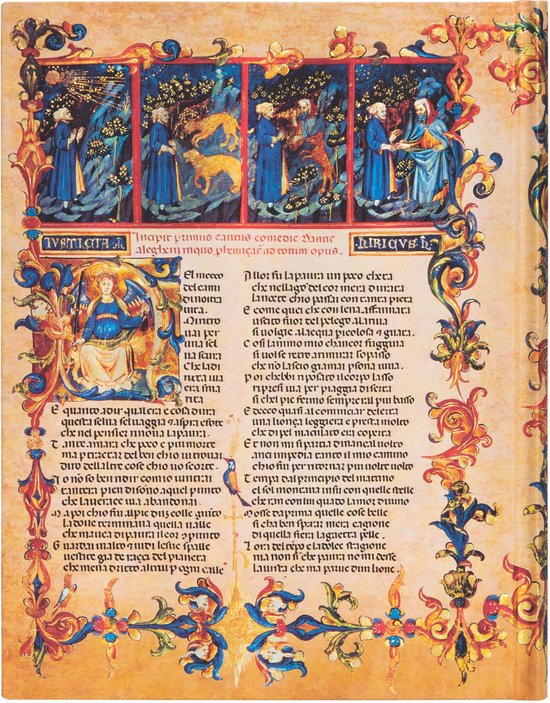 Incipit primus cantus comedie Dantis
aleghery inquo phemiçat ad totum opus.
El mecco
del cami
di nostra
uita.
uai per
una sel
ua scura
Che la di
ritta uia
era sma
rita
E quanto adir qual era e cosa dura
questa selua seluaggia e aspra e forte
che nel pensier rinoua la paura.
Tant e amara che poco e piu morte
ma p tractar del ben chio ui trouai
diro dellaltre cose chio uo scorte.
I o no so ben ridir comio untrai
tantera pien disono aquel punto
che la uerace uia abandonai.
M a poi chio fui alpie dun colle giunto
la doue terminaua quella ualle
che mauea di paura il cor compunto
G uardai in alto et uidi le sue spalle
uestite gia de raggi del pianeta
che mena dricto altrui p ogni calle
A llor fu la paura un poco cheta
che nellago del cor mera durata
la nocte chio passai con tanta pieta
E come quei che con lena affannata
uscito fuor del pelago alla riua
si uolge alacqua picolosa et guata.
C osi lanimo mio chancor fuggiua
si uolse retro a mirar lo passo
che no lascio giamai persona uiua.
P oi chebbi riposato il corpo lasso
ripresi uia per la piaggia diserta
si chel pie fermo sempre era l piu basso
E t ecco quasi al cominciar delerta
una lionça leggiera e presta molto
che di pel maculato era coperta
E t non mi si partia dinançi al uolto
anci impedia tanto il mio camino
chio fui per ritornar piu uolte uolto
T empo era dal principio del matino
el sol montaua insu con quelle stelle
che eran con lui quando lamor diuino
M osse da prima quelle cose belle
si cha ben sperar mera cagione
di quella fiera la gaietta pelle.
L ora del tepo e la dolce stagione
ma non si che paura no mi desse
la uista che ma parue dun lione.